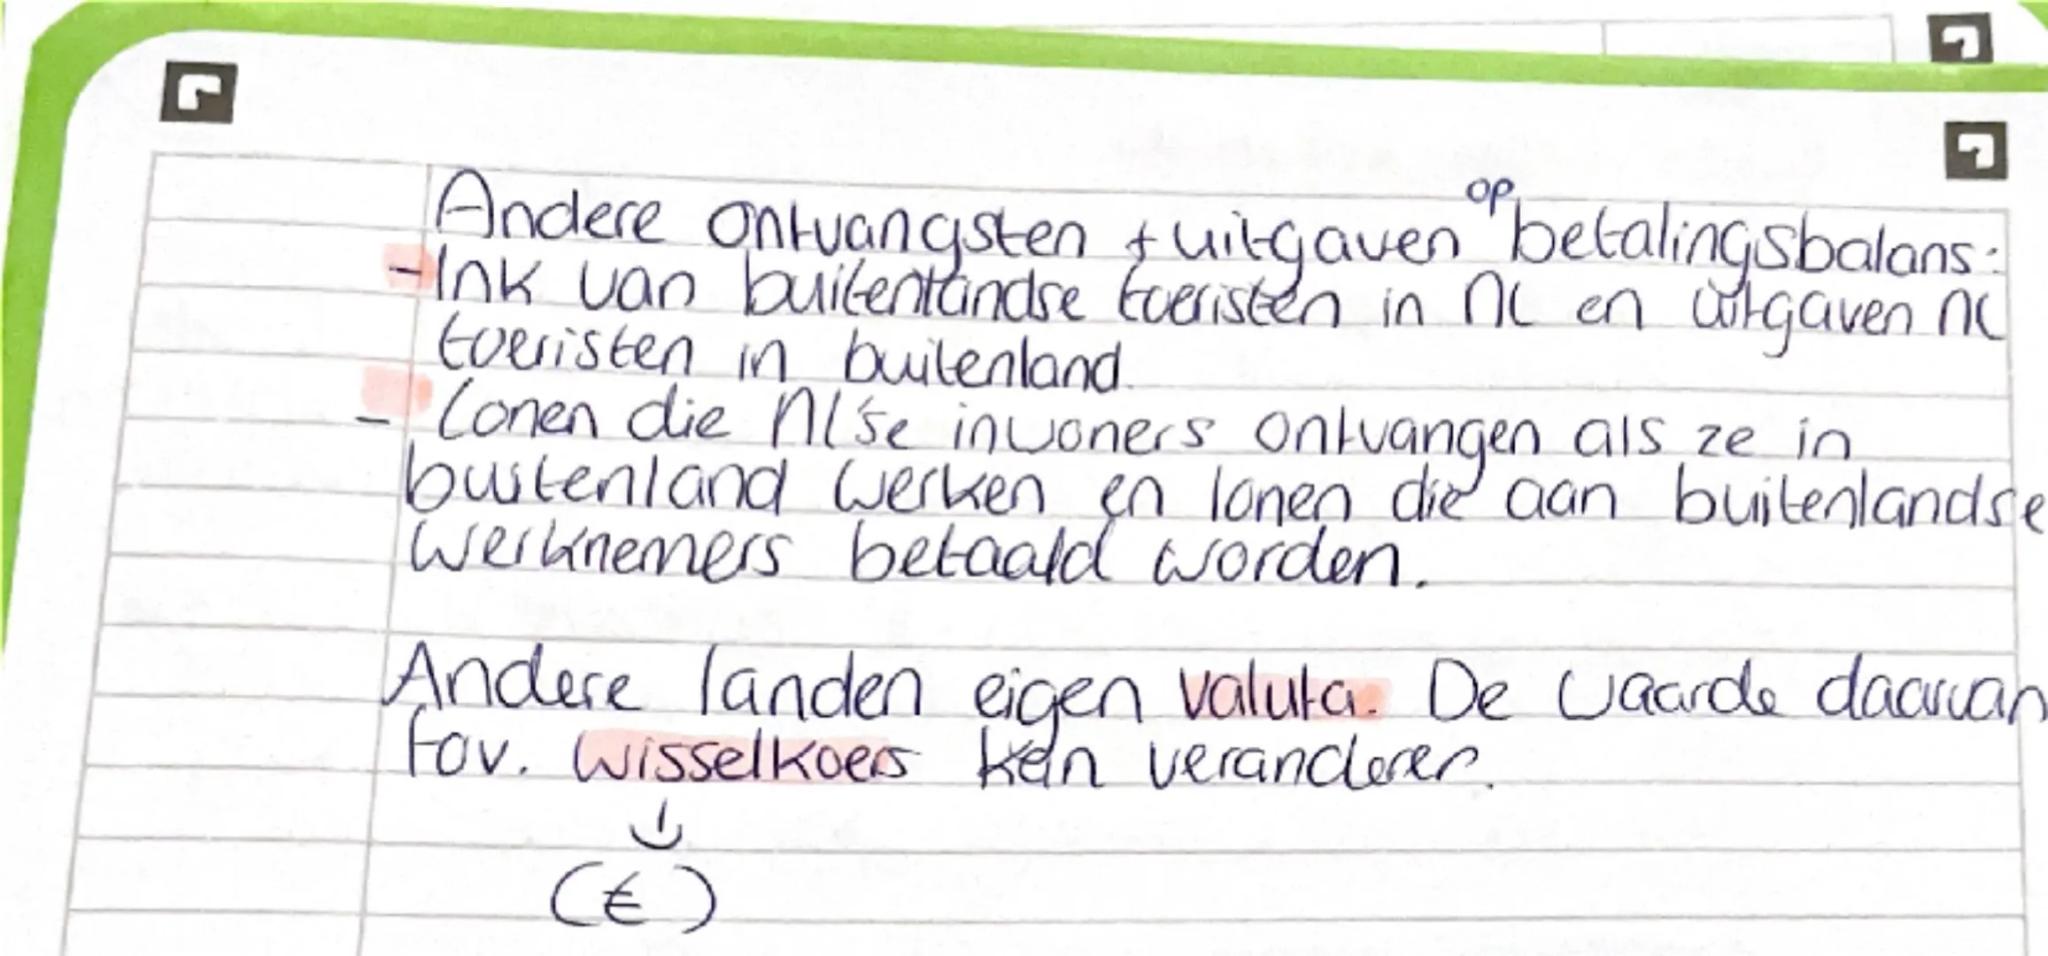 Andere ontvangsten + uitgaven op betalingsbalans:
- Ink van buitenlandse toeristen in NL en uitgaven NL
toeristen in buitenland.
- Lonen die NL'se inwoners ontvangen als ze in
buitenland werken en lonen die aan buitenlandse
werknemers betaald worden.
Andere landen eigen valuta. De waarde daarvan
tov. wisselkoers kan veranderen.
↓
(€)